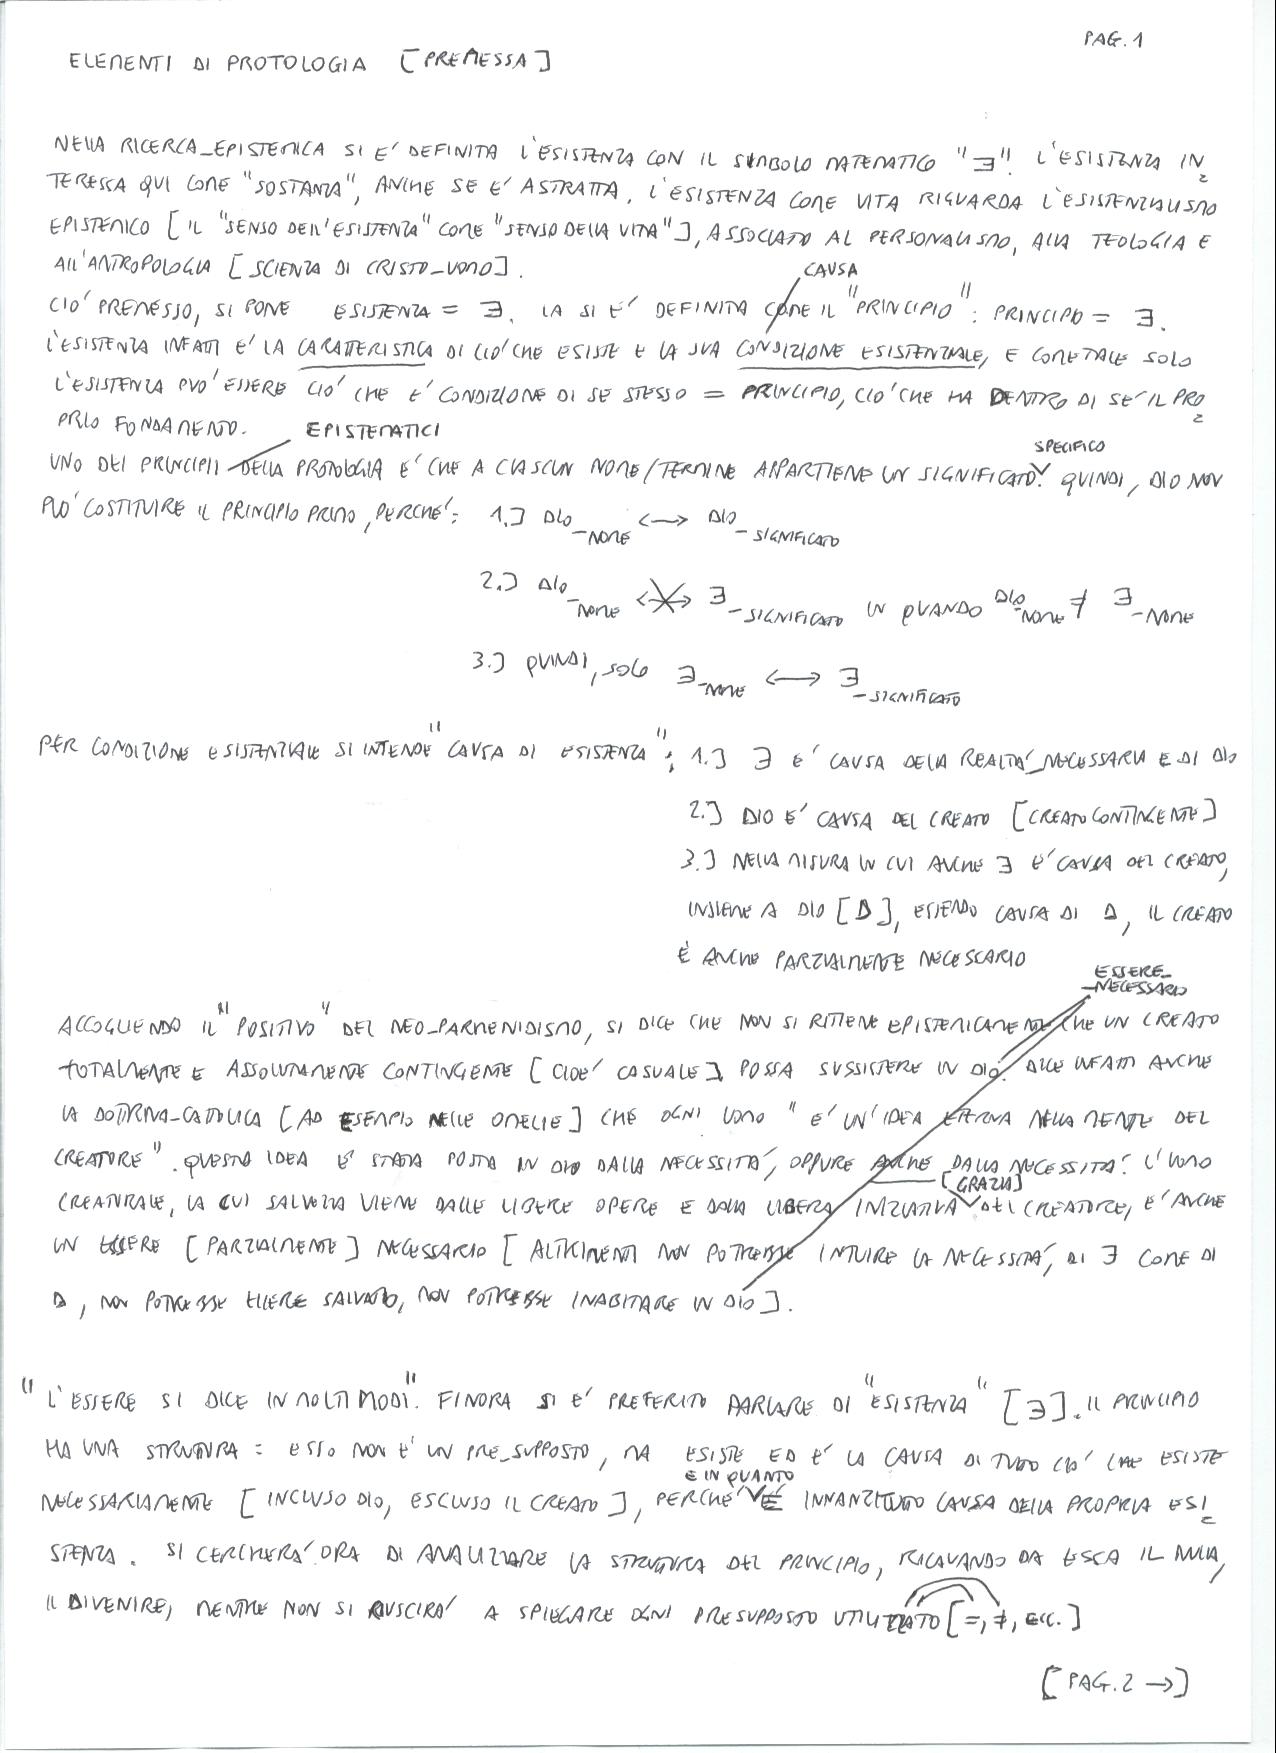 PAG. 1
ELEMENTI DI PROTOLOGIA [PREMESSA]
NELLA RICERCA_EPISTEMICA SI E' DEFINITA L'ESISTENZA CON IL SIMBOLO MATEMATICO "∃". L'ESISTENZA IN
TERESSA QUI COME "SOSTANZA", ANCHE SE E' ASTRATTA. L'ESISTENZA COME VITA RIGUARDA L'ESISTENZIALISMO
EPISTEMICO [IL "SENSO DELL'ESISTENZA" COME "SENSO DELLA VITA"], ASSOCIATO AL PERSONALISMO, ALLA TEOLOGIA E
ALL'ANTROPOLOGIA [SCIENZA DI CRISTO_UOMO].
CAUSA
CIO' PREMESSO, SI PONE ESISTENZA = ∃. LA SI E' DEFINITA COME IL "PRINCIPIO": PRINCIPIO = ∃.
L'ESISTENZA INFATTI E' LA CARATTERISTICA DI CIO' CHE ESISTE E LA SUA CONDIZIONE ESISTENZIALE, E COME TALE SOLO
L'ESISTENZA PUO' ESSERE CIO' CHE E' CONDIZIONE DI SE STESSO = PRINCIPIO, CIO' CHE HA DENTRO DI SE' IL PRO
PRIO FONDAMENTO.
EPISTEMATICI
SPECIFICO
UNO DEI PRINCIPII DELLA PROTOLOGIA E' CHE A CIASCUN NOME/TERMINE APPARTIENE UN SIGNIFICATO. QUINDI, DIO NON
PUO' COSTITUIRE IL PRINCIPIO PRIMO, PERCHE': 1.] DIO_NOME <—> DIO_SIGNIFICATO
2.] DIO_NOME <-X-> ∃_SIGNIFICATO IN QUANDO DIO_NOME ≠ ∃_NOME
3.] QUINDI, SOLO ∃_NOME <—> ∃_SIGNIFICATO
PER CONDIZIONE ESISTENZIALE SI INTENDE "CAUSA DI ESISTENZA"; 1.] ∃ E' CAUSA DELLA REALTA'_NECESSARIA E DI DIO
2.] DIO E' CAUSA DEL CREATO [CREATO CONTINGENTE]
3.] NELLA MISURA IN CUI ANCHE ∃ E' CAUSA DEL CREATO,
INSIEME A DIO [D], ESSENDO CAUSA DI D, IL CREATO
È ANCHE PARZIALMENTE NECESSARIO
ESSERE_
_NECESSARIO
ACCOGLIENDO IL "POSITIVO" DEL NEO_PARMENIDISMO, SI DICE CHE NON SI RITIENE EPISTEMICAMENTE CHE UN CREATO
TOTALMENTE E ASSOLUTAMENTE CONTINGENTE [CIOE' CASUALE] POSSA SUSSISTERE IN DIO. DICE INFATTI ANCHE
LA DOTTRINA_CATTOLICA [AD ESEMPIO NELLE OMELIE] CHE OGNI UOMO "E' UN'IDEA ETERNA NELLA MENTE DEL
CREATORE". QUESTA IDEA E' STATA POSTA IN DIO DALLA NECESSITA', OPPURE ANCHE DALLA NECESSITA'. L'UOMO
[GRAZIA]
CREATURALE, LA CUI SALVEZZA VIENE DALLE LIBERE OPERE E DALLA LIBERA INIZIATIVA DEL CREATORE, E' ANCHE
UN ESSERE [PARZIALMENTE] NECESSARIO [ALTRIMENTI NON POTREBBE INTUIRE LA NECESSITA', DI ∃ COME DI
D, NON POTREBBE ESSERE SALVATO, NON POTREBBE INABITARE IN DIO].
"L'ESSERE SI DICE IN MOLTI MODI". FINORA SI E' PREFERITO PARLARE DI "ESISTENZA" [∃]. IL PRINCIPIO
HA UNA STRUTTURA: ESSO NON E' UN PRE_SUPPOSTO, MA ESISTE ED E' LA CAUSA DI TUTTO CIO' CHE ESISTE
E IN QUANTO
NECESSARIAMENTE [INCLUSO DIO, ESCLUSO IL CREATO], PERCHE' E' INNANZITUTTO CAUSA DELLA PROPRIA ESI
STENZA. SI CERCHERA' ORA DI ANALIZZARE LA STRUTTURA DEL PRINCIPIO, RICAVANDO DA ESSA IL NULLA,
IL DIVENIRE, MENTRE NON SI RIUSCIRA' A SPIEGARE OGNI PRESUPPOSTO UTILIZZATO [=, ≠, ECC.]
[PAG. 2 →]